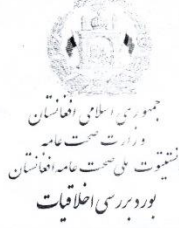 جمهوری اسلامی افغانستان
وزارت صحت عامه
نستیتوت ملی صحت عامه افغانستان
بورد بررسی اخلاقیات